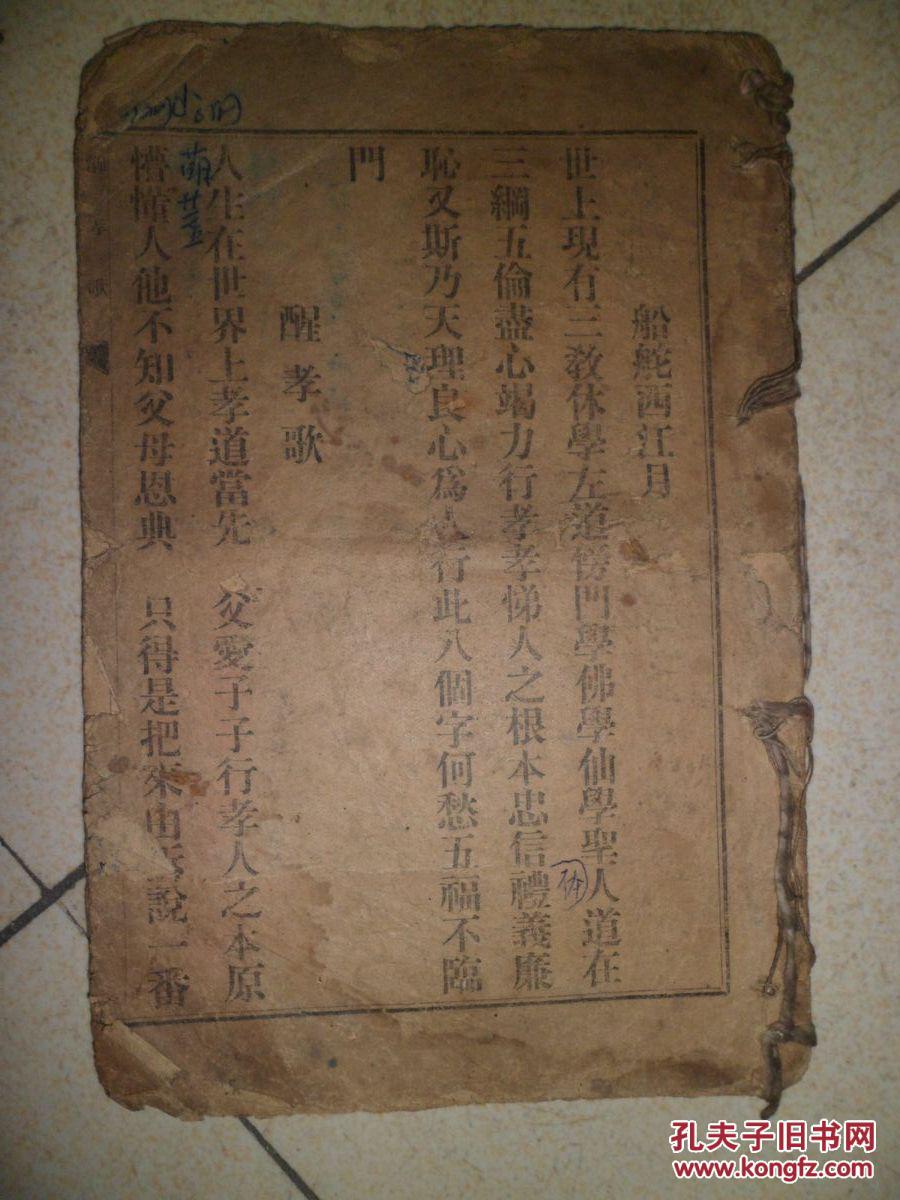 船舵西江月
世上現有三教休學左道傍門學佛學仙學聖人道在
三綱五倫盡心竭力行孝孝悌人之根本忠信禮義廉
恥又斯乃天理良心為人行此八個字何愁五福不臨
門
醒孝歌
人生在世界上孝道當先 父愛子子行孝人之本原
懵懂人他不知父母恩典 只得是把來由訴說一番
孔夫子旧书网
www.kongfz.com